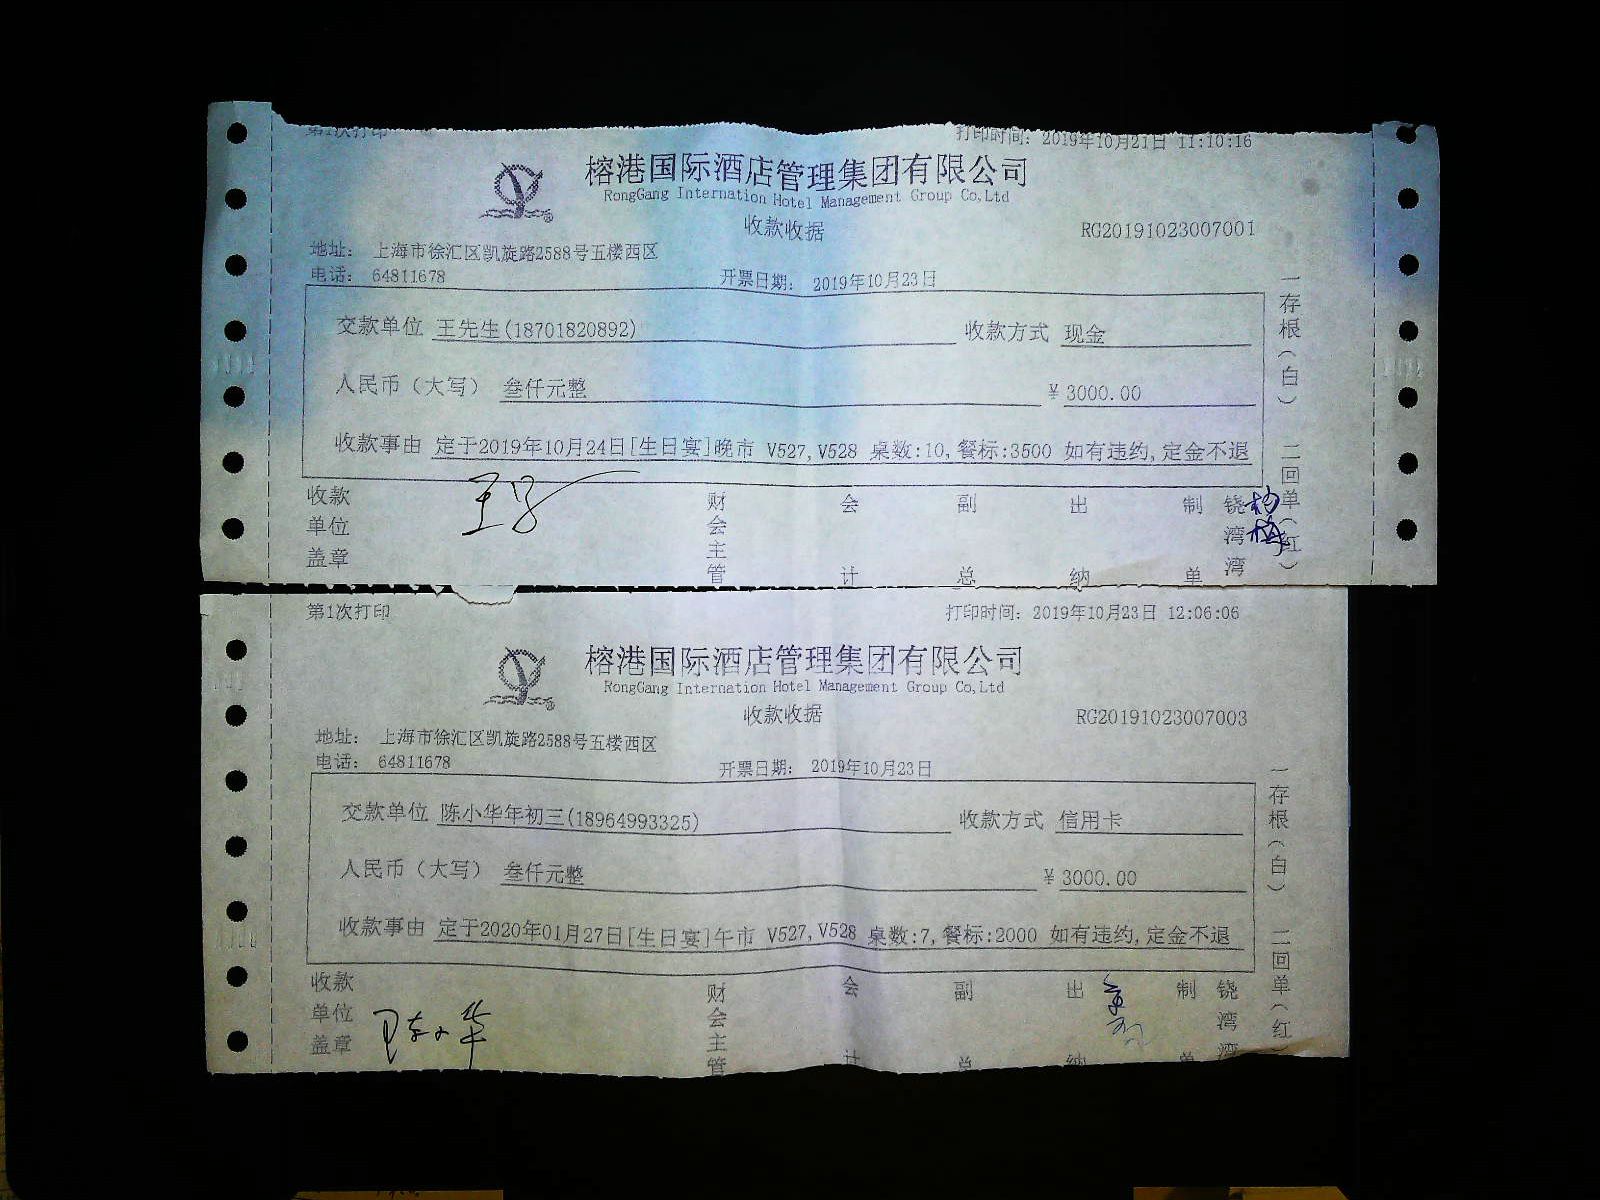 第1次打印 打印时间: 2019年10月21日 11:10:16
榕港国际酒店管理集团有限公司
RongGang Internation Hotel Management Group Co,Ltd
收款收据 RG20191023007001
地址: 上海市徐汇区凯旋路2588号五楼西区
电话: 64811678 开票日期: 2019年10月23日
交款单位 王先生(18701820892) 收款方式 现金
人民币(大写) 叁仟元整 ¥3000.00
收款事由 定于2019年10月24日[生日宴]晚市 V527,V528 桌数:10,餐标:3500 如有违约,定金不退
收款单位盖章 财会主管 会计 副总 出纳 制单 铙湾湾
一存根(白) 二回单(红)
第1次打印 打印时间: 2019年10月23日 12:06:06
榕港国际酒店管理集团有限公司
RongGang Internation Hotel Management Group Co,Ltd
收款收据 RG20191023007003
地址: 上海市徐汇区凯旋路2588号五楼西区
电话: 64811678 开票日期: 2019年10月23日
交款单位 陈小华年初三(18964993325) 收款方式 信用卡
人民币(大写) 叁仟元整 ¥3000.00
收款事由 定于2020年01月27日[生日宴]午市 V527,V528 桌数:7,餐标:2000 如有违约,定金不退
收款单位盖章 陈小华 财会主管 会计 副总 出纳 制单 铙湾湾
一存根(白) 二回单(红)